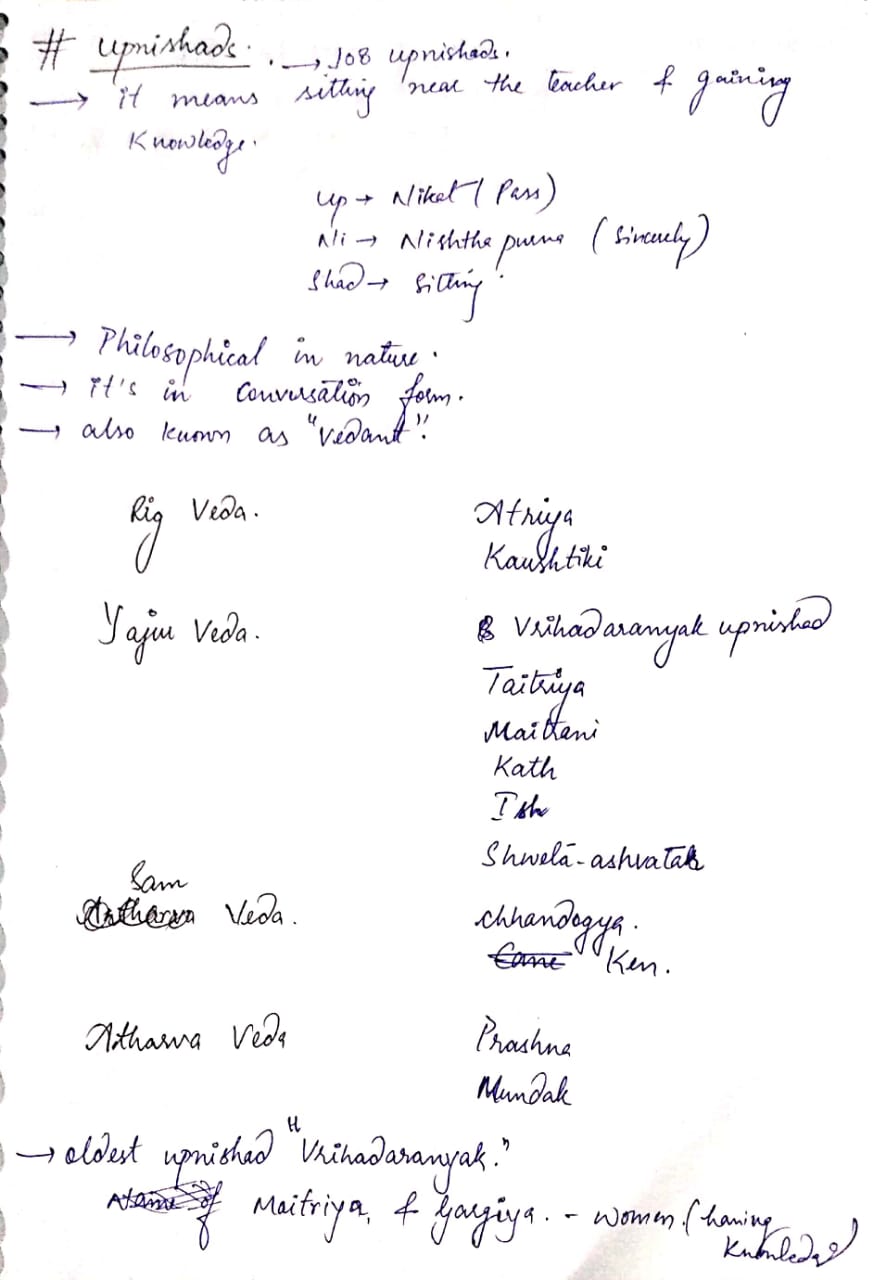 # Upnishads. → 108 upnishads.
→ it means sitting near the teacher & gaining
Knowledge.
Up → Nikat (Pass)
Ni → Nishtha purna (Sincerely)
Shad → Sitting.
→ Philosophical in nature.
→ it's in conversation form.
→ also known as "Vedant".
Rig Veda. Atriya
Kaushtiki
Yajur Veda. Vrihadaranyak upnishad
Taitriya
Maitrani
Kath
Ish
Shwetā-ashvatak
Sam
Veda. chhandogya.
Ken.
Atharva Veda Prashna
Mundak
→ oldest upnishad "Vrihadaranyak."
Maitriya, & Gargiya. - women (having
Knowledge)